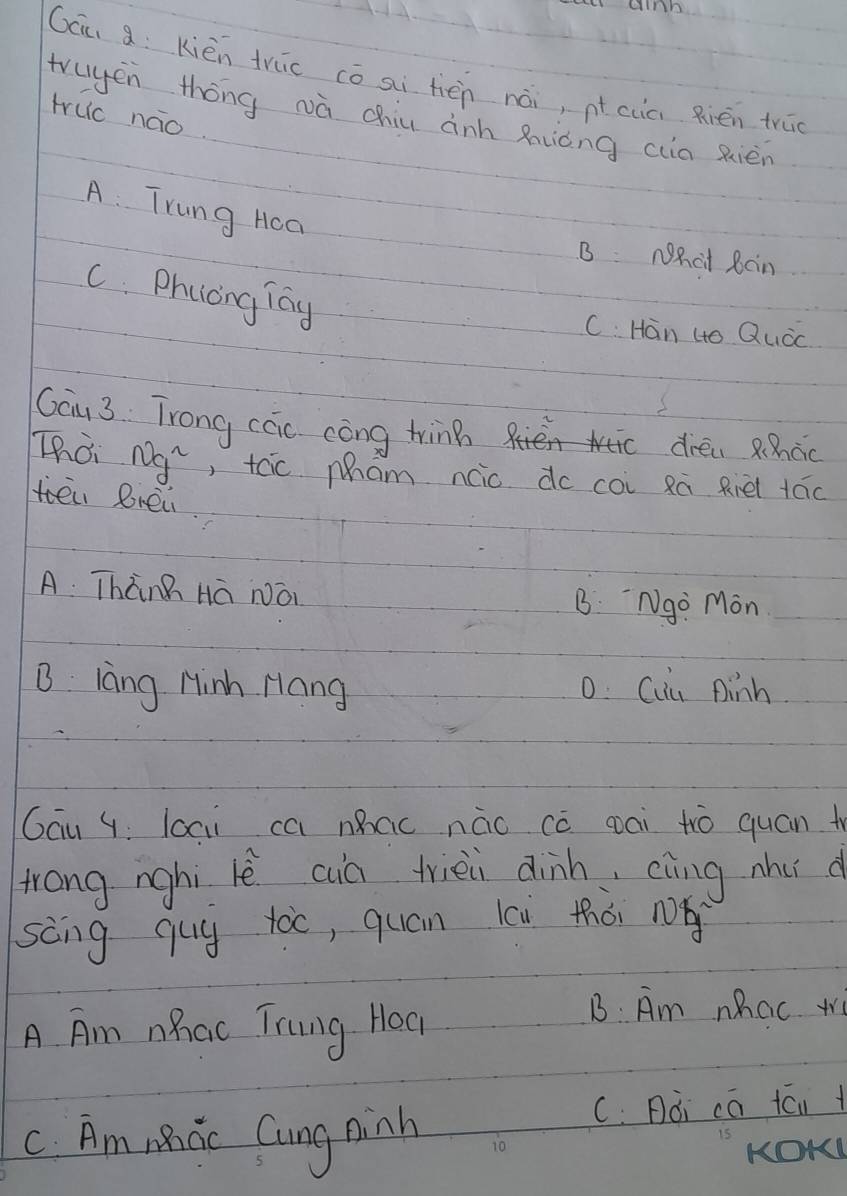 Câu 2: Kiến trúc có sự tiếp nối, pt của kiến trúc
truyền thống và chịu ảnh hưởng của kiến
trúc nào
A. Trung Hoa
B. Nhật Bản
C. Phương Tây
C. Hàn Quốc
Câu 3. Trong các công trình điêu khắc
Thời Ng~, tác phẩm nào đc coi là kiệt tác
tiêu biểu.
A. Thành Hà Nội
B. Ngọ Môn
B. lăng Minh Mạng
D. Cửu Đỉnh
Câu 4: loại ca nhạc nào có vai trò quan
trong nghi lễ của triều đình, cũng như
sống quý tộc, quan lại thời Ng~
A Âm nhạc Trung Hoa
B. Âm nhạc
C. Âm nhạc Cung Đình
C. Đời ca tài
5 10 15